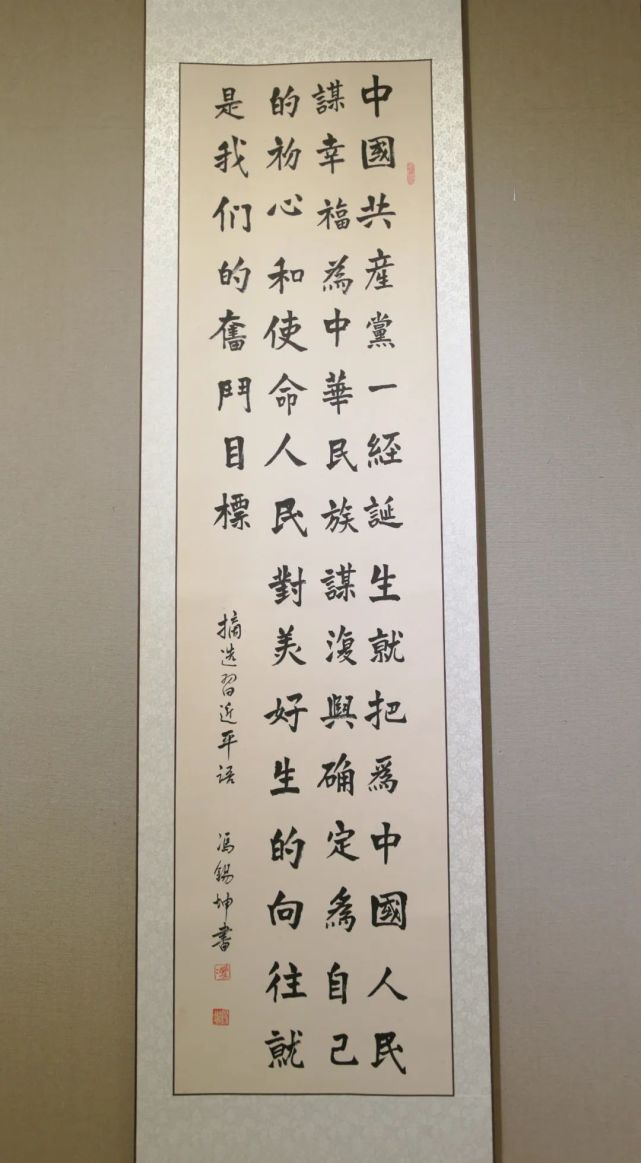 中國共産黨一經誕生就把爲中國人民
謀幸福為中華民族謀復興确定爲自己
的初心和使命人民對美好生的向往就
是我们的奮鬥目標
摘选習近平语
冯錫坤書